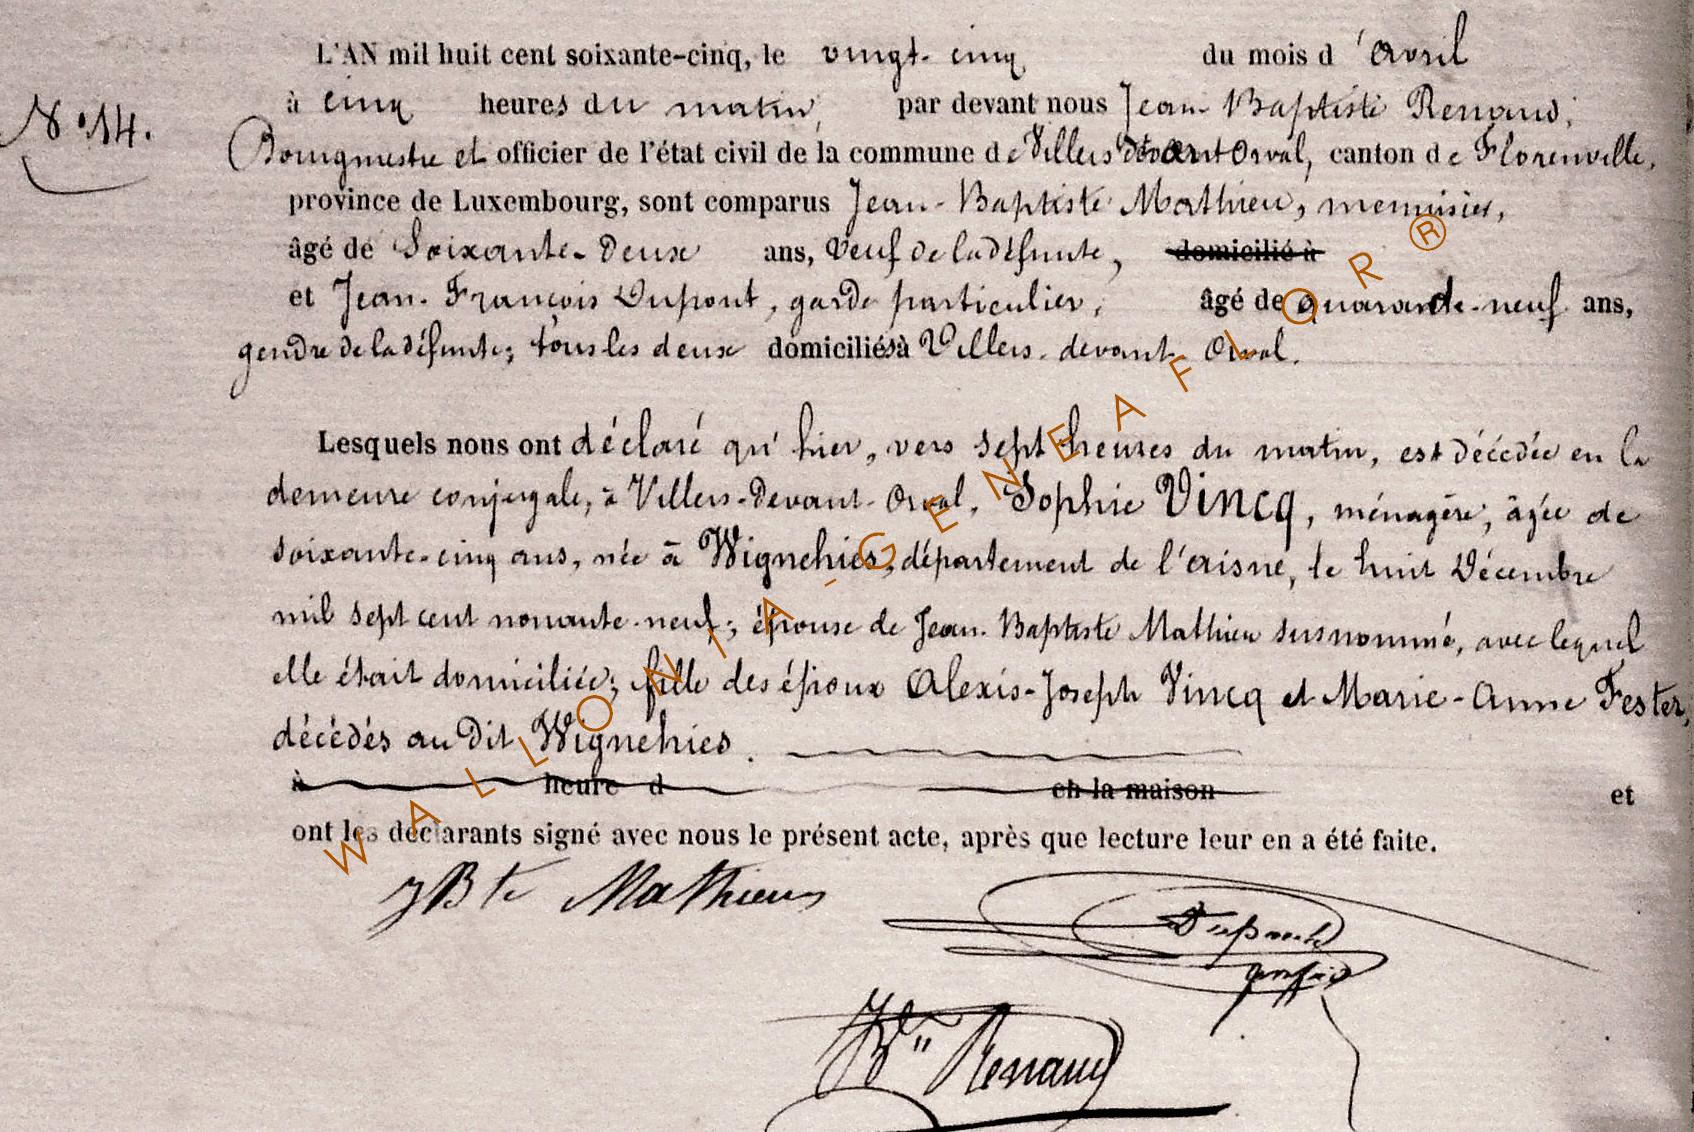 L'AN mil huit cent soixante-cinq, le vingt-cinq du mois d'avril
N° 14.
à cinq heures du matin, par devant nous Jean-Baptiste Renaud,
Bourgmestre et officier de l'état civil de la commune de Villers devant Orval, canton de Florenville,
province de Luxembourg, sont comparus Jean-Baptiste Mathieu, menuisier,
âgé de Soixante-Deux ans, veuf de la défunte, domicilié à
et Jean-François Dupont, garde particulier, âgé de quarante-neuf ans,
gendre de la défunte; tous les deux domiciliés à Villers-devant-Orval.
Lesquels nous ont déclaré qu'hier, vers sept heures du matin, est décédée en la
demeure conjugale, à Villers-Devant-Orval, Sophie Vincq, ménagère, âgée de
soixante-cinq ans, née à Wignehies, département de l'aisne, le huit Décembre
mil sept cent nonante-neuf; épouse de Jean-Baptiste Mathieu susnommé, avec lequel
elle était domiciliée; fille des époux Alexis-Joseph Vincq et Marie-Anne Fester,
décédés au Dit Wignehies.
à heure d en la maison et
ont les déclarants signé avec nous le présent acte, après que lecture leur en a été faite.
JBte Mathieu
Dupont
Renaud
WALLONIA-GENEAFLOR®